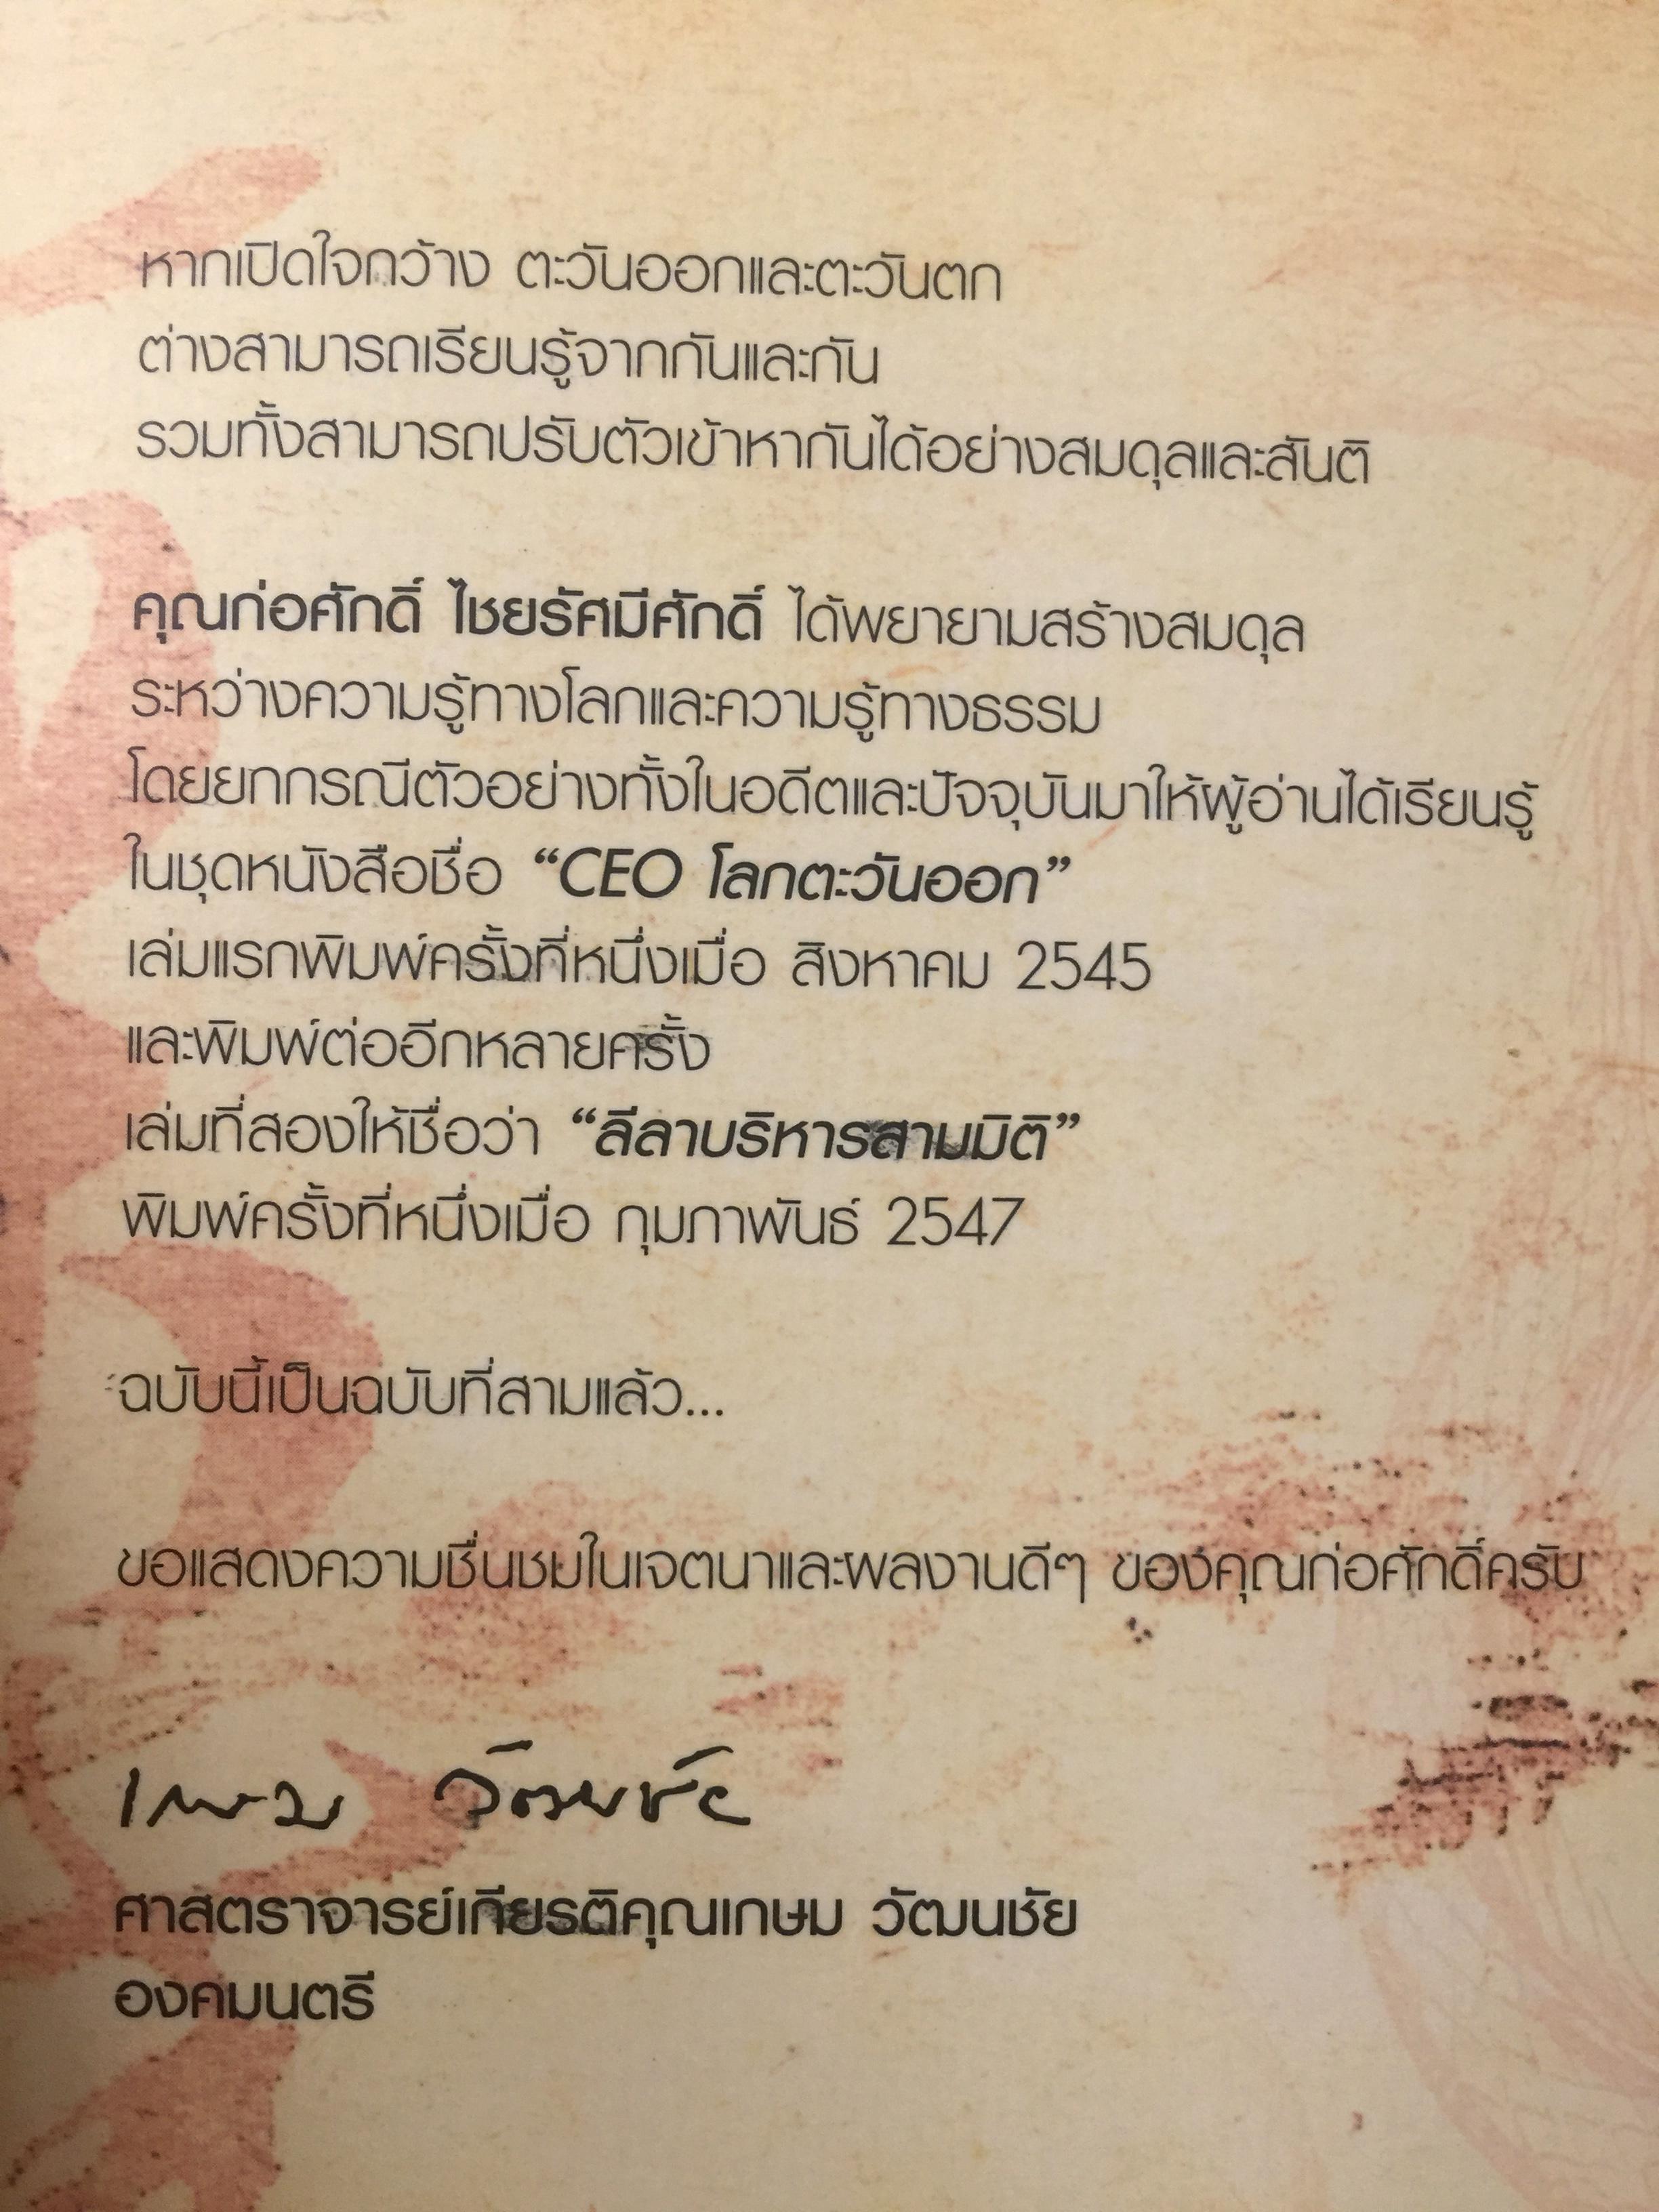 หากเปิดใจกว้าง ตะวันออกและตะวันตก
ต่างสามารถเรียนรู้จากกันและกัน
รวมทั้งสามารถปรับตัวเข้าหากันได้อย่างสมดุลและสันติ
คุณก่อศักดิ์ ไชยรัศมีศักดิ์ ได้พยายามสร้างสมดุล
ระหว่างความรู้ทางโลกและความรู้ทางธรรม
โดยยกกรณีตัวอย่างทั้งในอดีตและปัจจุบันมาให้ผู้อ่านได้เรียนรู้
ในชุดหนังสือชื่อ “CEO โลกตะวันออก”
เล่มแรกพิมพ์ครั้งที่หนึ่งเมื่อ สิงหาคม 2545
และพิมพ์ต่ออีกหลายครั้ง
เล่มที่สองให้ชื่อว่า “ลีลาบริหารสามมิติ”
พิมพ์ครั้งที่หนึ่งเมื่อ กุมภาพันธ์ 2547
ฉบับนี้เป็นฉบับที่สามแล้ว...
ขอแสดงความชื่นชมในเจตนาและผลงานดีๆ ของคุณก่อศักดิ์ครับ
เกษม วัฒนชัย
ศาสตราจารย์เกียรติคุณเกษม วัฒนชัย
องคมนตรี